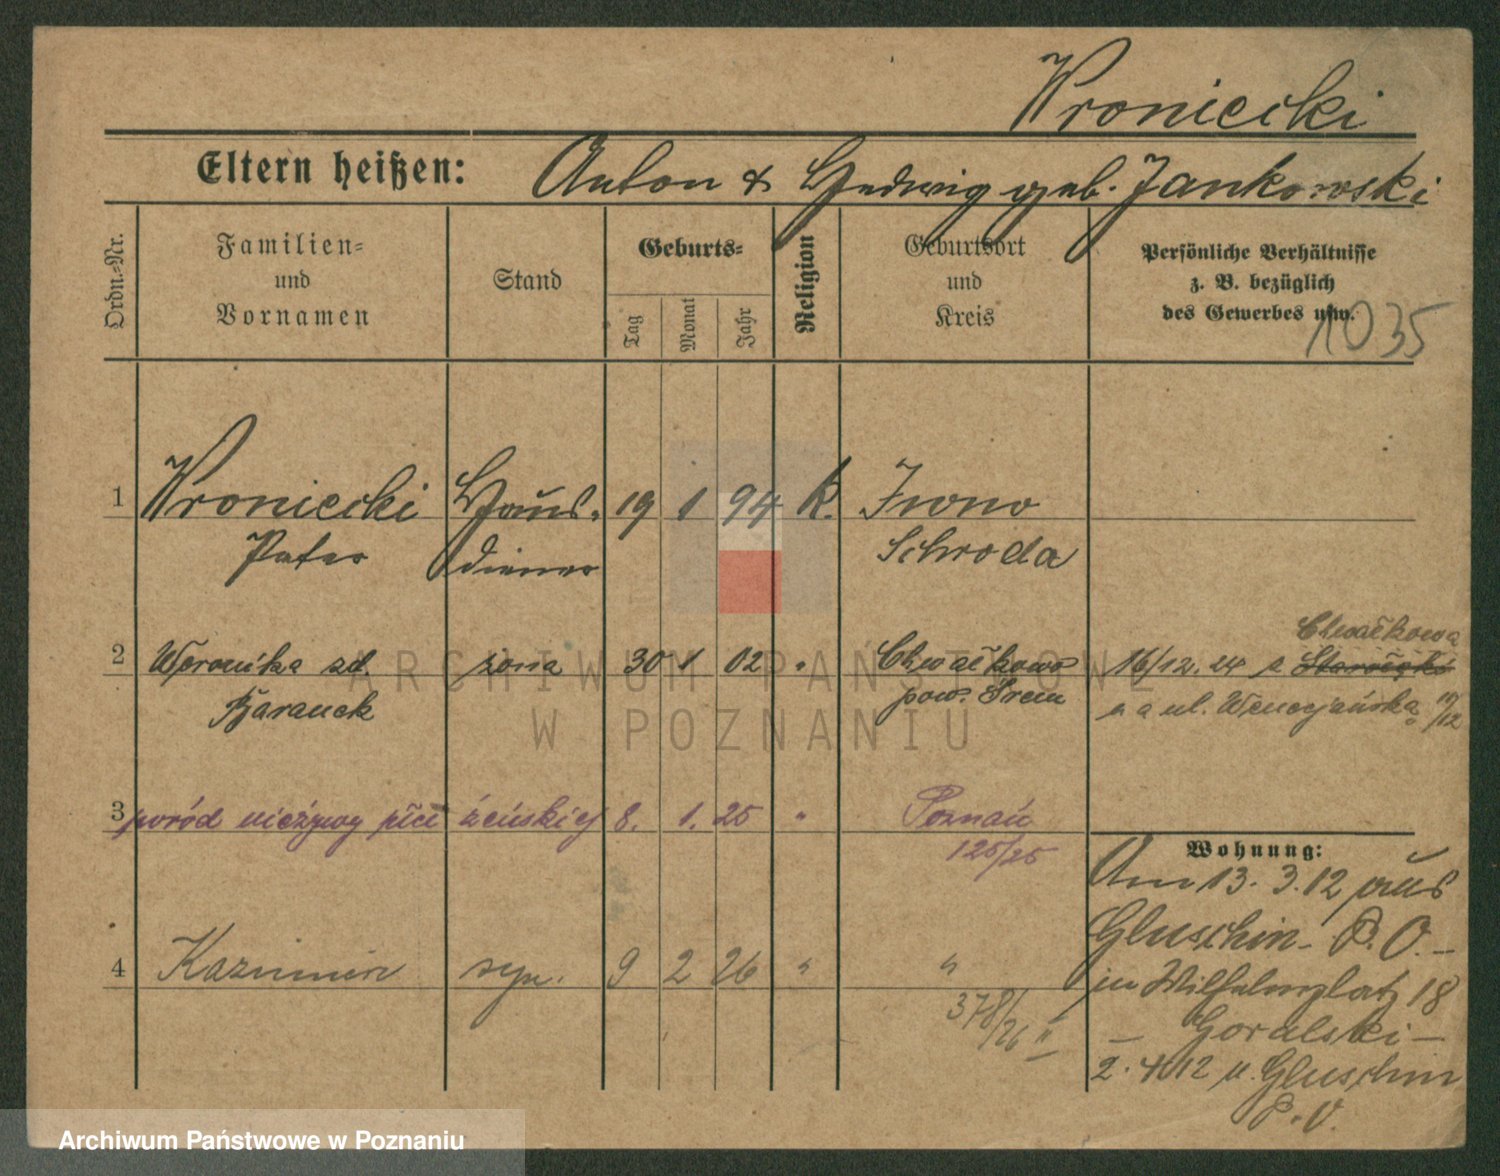 Wroniecki
Eltern heißen: Anton & Hedwig geb. Jankowski
Ordn.-Nr.
Familien-
und
Vornamen
Stand
Geburts-
Tag
Monat
Jahr
Religion
Geburtsort
und
Kreis
Persönliche Verhältnisse
z. B. bezüglich
des Gewerbes usw.
1035
1 Wroniecki Haus- 19 1 94 k. Iwno
Peter diener Schroda
Chwałkowa
2 Weronika zd. żona 30 1 02 " Chwałkowo 16/12.24 z Starołęki
Baranek pow. Śrem n a ul. Wenecjańska 10/12
3 poród nieżywy płci żeńskiej 8. 1. 25 " Poznań
125/25
4 Kazimierz syn. 9 2 26 " "
378/26 II
Wohnung:
Am 13.3.12 aus
Gluschin - P.O. -
in Wilhelmplatz 18
- Goralski -
2.4.12 n. Gluschin
P.O.
ARCHIWUM PAŃSTWOWE
W POZNANIU
Archiwum Państwowe w Poznaniu